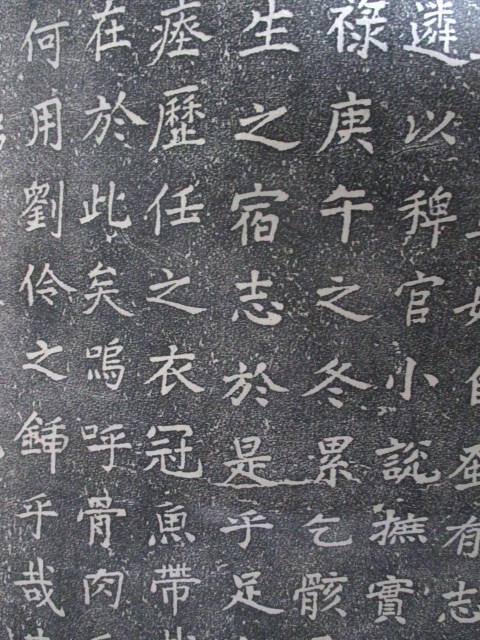 遴以稗官小說摭實
祿庚午之冬累乞骸
生之宿志於是乎足
瘞歷任之衣冠魚帶
在於此矣嗚呼骨肉
何用劉伶之鍤乎哉